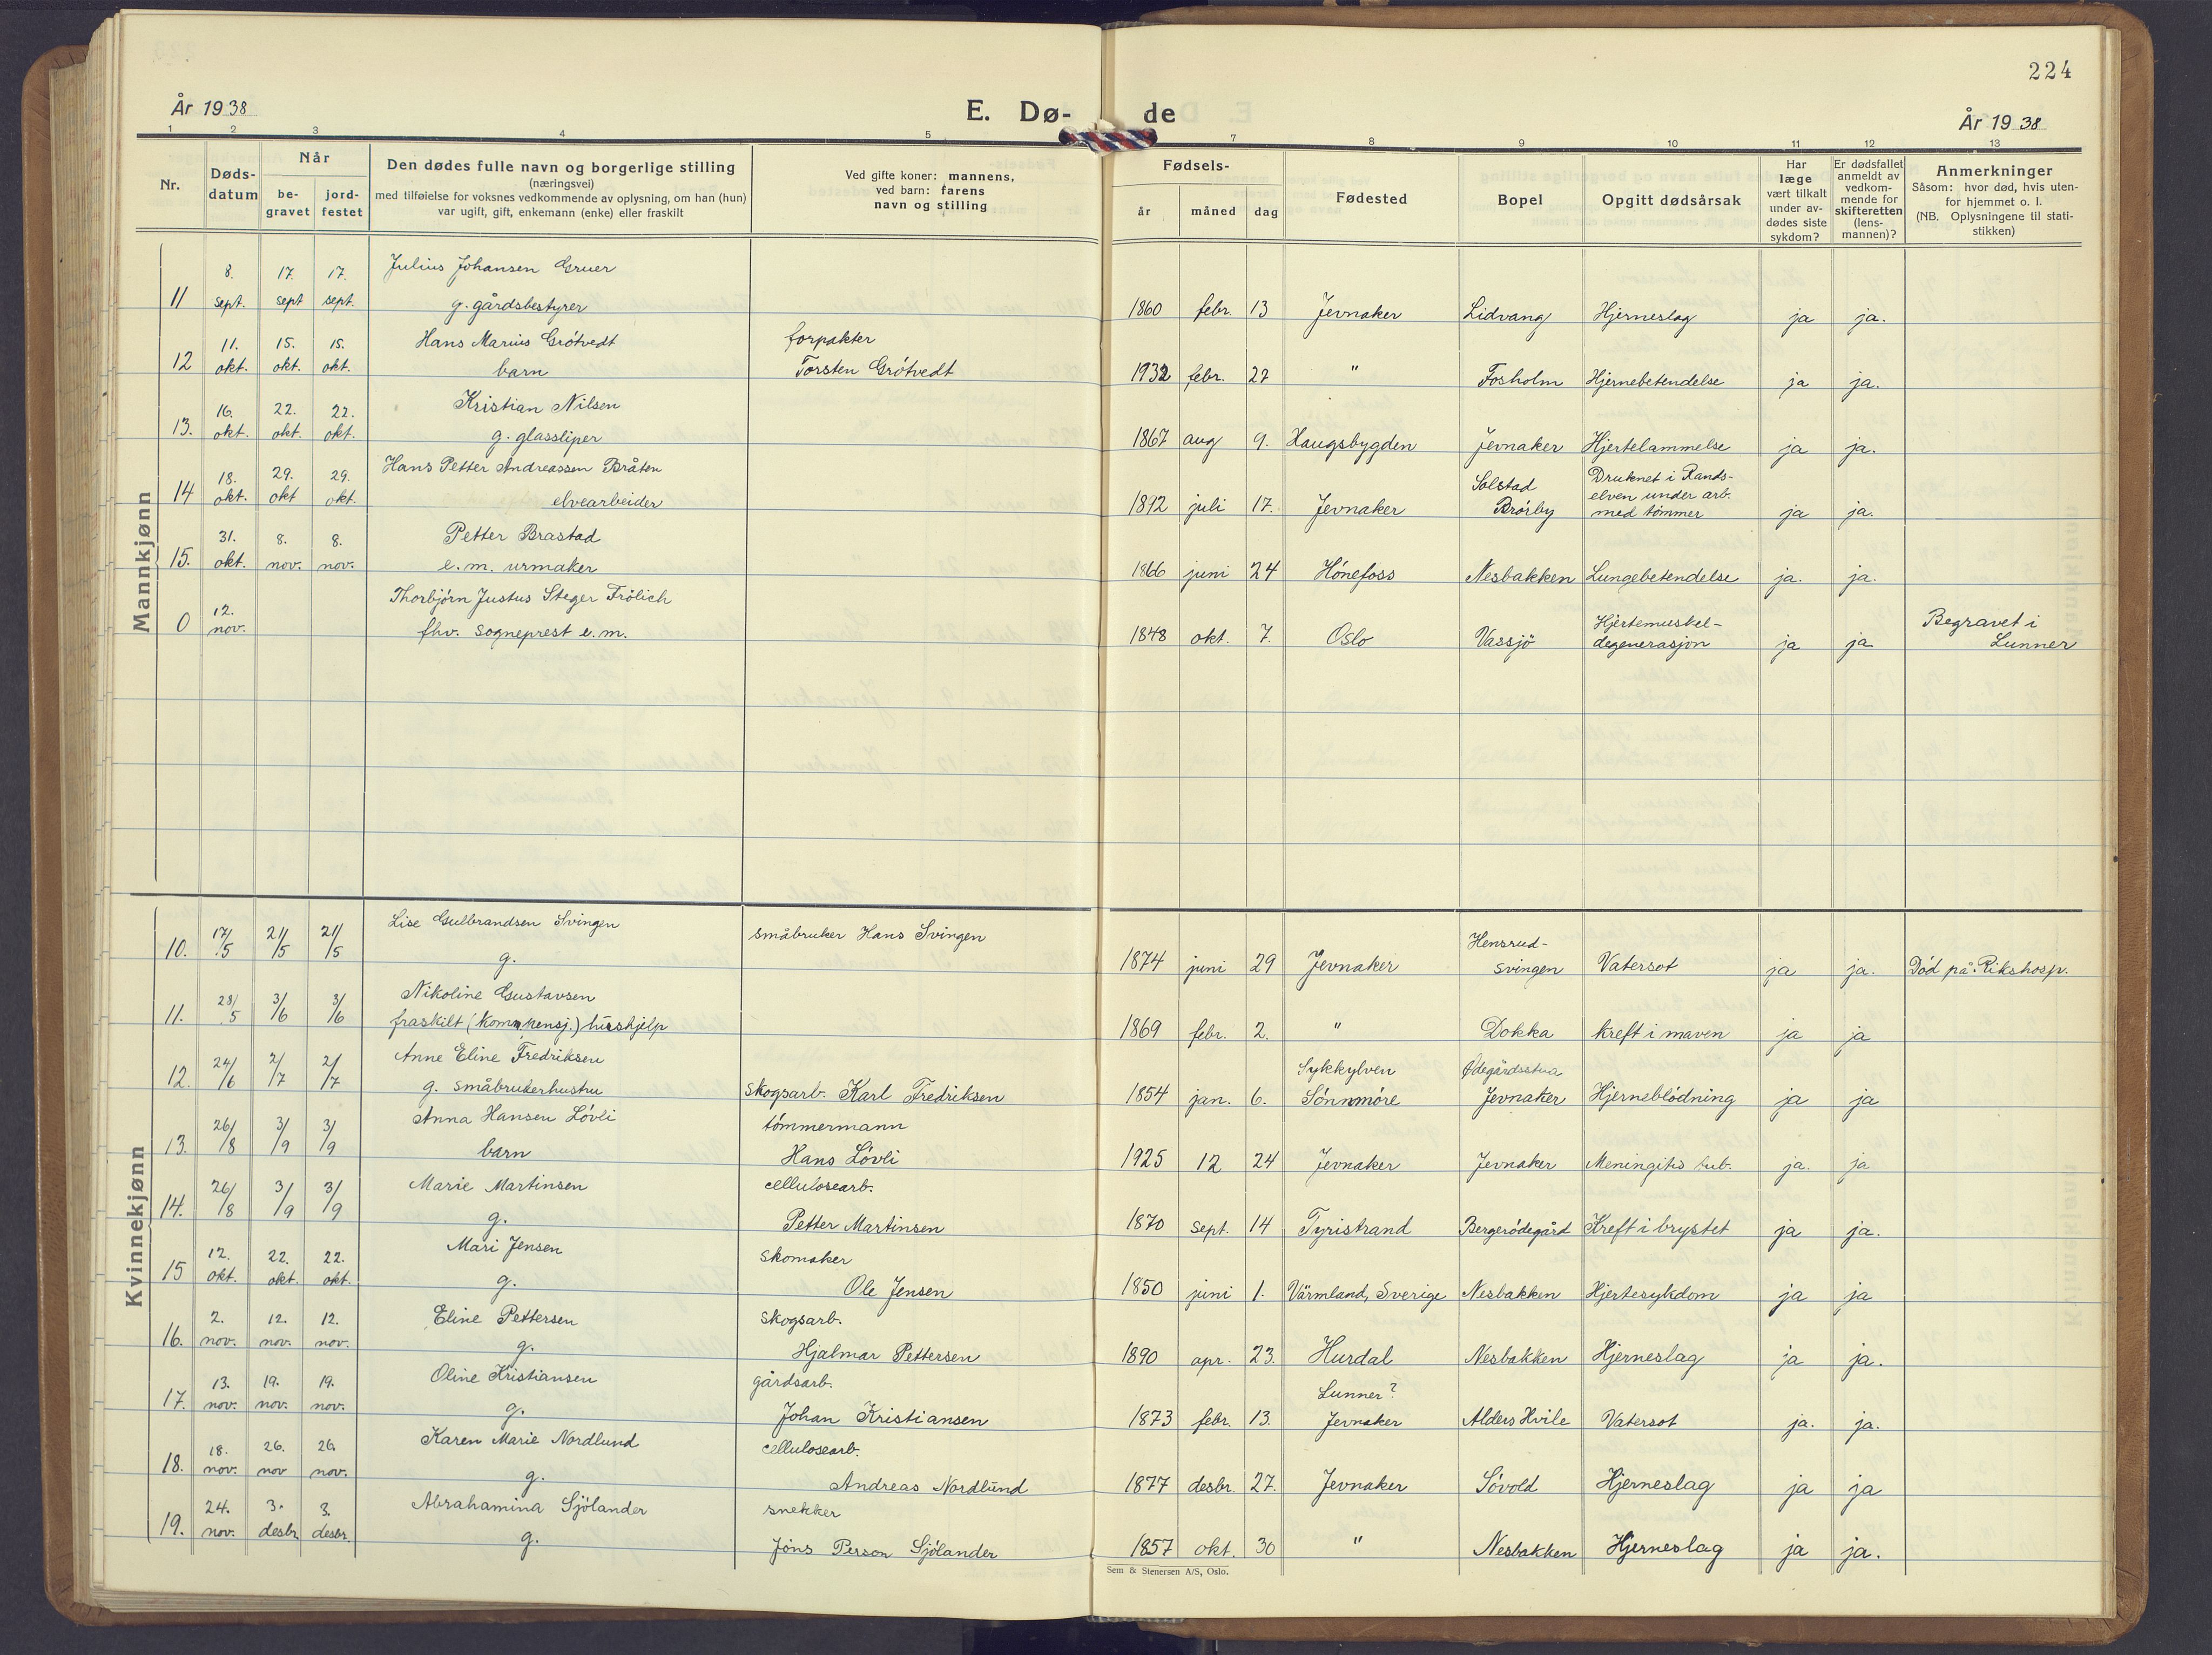 224
År 1938
E. Dø-
de
År 1938
1 2 3 4 5
7 8 9 10 11 12 13
Nr.
Døds-
datum
Når
be-
gravet
jord-
festet
Den dødes fulle navn og borgerlige stilling
(næringsvei)
med tilføielse for voksnes vedkommende av oplysning, om han (hun)
var ugift, gift, enkemann (enke) eller fraskilt
Ved gifte koner: mannens,
ved barn: farens
navn og stilling
Fødsels-
år måned dag
Fødested
Bopel
Opgitt dødsårsak
Har
læge
vært tilkalt
under av-
dødes siste
sykdom?
Er dødsfallet
anmeldt av
vedkom-
mende for
skifteretten
(lens-
mannen)?
Anmerkninger
Såsom: hvor død, hvis uten-
for hjemmet o. l.
(NB. Oplysningene til stati-
stikken)
Mannkjønn
8. 17. 17. Julius Johansen Gruer
11 sept. sept sept. g. gårdsbestyrer 1860 febr. 13 Jevnaker Lidvang Hjerneslag ja ja.
11. 15. 15. Hans Marius Grötvedt forpakter
12 okt. okt. okt. barn Torsten Grötvedt 1932 febr. 27 " Fosholm Hjernebetendelse ja ja.
16. 22. 22. Kristian Nilsen
13. okt. okt. okt. g. glassliper 1867 aug 9. Haugsbygden Jevnaker Hjertelammelse ja ja.
18. 29. 29. Hans Petter Andreassen Bråten Solstad Druknet i Rands-
elven under arb.
14 okt. okt okt. elvearbeider 1892 juli 17. Jevnaker Brörby med tömmer ja ja.
31. 8. 8. Petter Brastad
15. okt. nov. nov. e.m. urmaker 1866 juni 24 Hönefoss Nesbakken Lungebetendelse ja. ja.
12. Thorbjörn Justus Steger Frölich Hjertemuskel- Begravet i
0 nov. fhv. sogneprest e.m. 1848 okt. 7. Oslo Vassjö degenerasjon ja ja Lunner
Kvinnekjønn
Lise Gulbrandsen Svingen småbruker Hans Svingen Hensrud-
10. 17/5 21/5 21/5 g. 1874 juni 29 Jevnaker svingen Vatersot ja ja. Död på Rikshosp.
Nikoline Gustavsen
11. 28/5 3/6 3/6 fraskilt (komm.pensj.) hushjelp 1869 febr. 2. " Dokka kreft i maven ja ja
Anne Eline Fredriksen Sykkylven Ødegårdsstua
12. 24/6 2/7 2/7 g. småbrukerhustru skogsarb. Karl Fredriksen 1854 jan. 6. Sönnmöre Jevnaker Hjerneblödning ja ja
Anna Hansen Lövli tömmermann
13. 26/8 3/9 3/9 barn Hans Lövli 1925 12 24 Jevnaker Jevnaker Meningitis tub. ja. ja
Marie Martinsen cellulosearb.
14. 26/8 3/9 3/9 g. Petter Martinsen 1870 sept. 14 Tyristrand Bergerödegård Kreft i brystet ja ja.
12. 22. 22. Mari Jensen skomaker
15 okt. okt. okt. g. Ole Jensen 1850 juni 1. Värmland, Sverige Nesbakken Hjertesykdom ja ja
2. 12. 12. Eline Pettersen skogsarb.
16. nov. nov. nov. g. Hjalmar Pettersen 1890 apr. 23. Hurdal Nesbakken Hjerneslag ja ja.
13. 19. 19. Oline Kristiansen gårdsarb. Lunner?
17. nov. nov. nov. g. Johan Kristiansen 1873 febr. 13. Jevnaker Alders Hvile Vatersot ja. ja.
18. 26. 26. Karen Marie Nordlund cellulosearb.
18. nov. nov nov. g. Andreas Nordlund 1877 desbr. 27. Jevnaker Sövold Hjerneslag ja ja
24. 3. 3. Abrahamina Sjölander snekker
19. nov. desbr. desbr. g. Jöns Person Sjölander 1857 okt. 30 " Nesbakken Hjerneslag ja ja.
Sem & Stenersen A/S, Oslo.